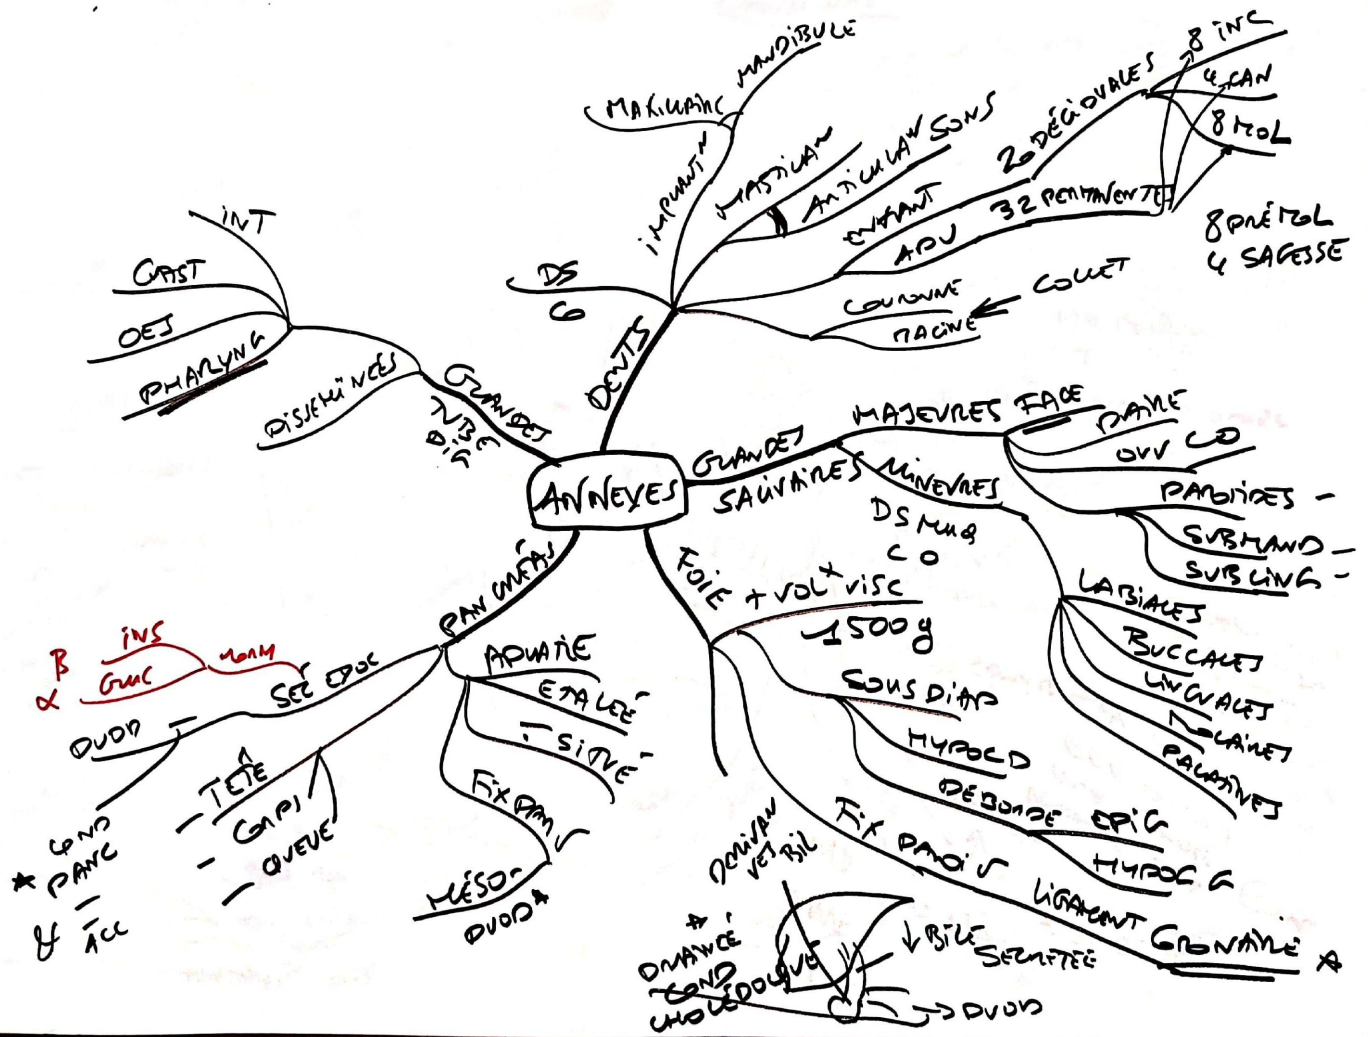 ANNEXES
DENTS
DS
CO
IMPLANTN
MAXILLAIRE
MANDIBULE
MASTICAN
ARTICULAN SONS
ENFANT
20 DÉCIDUALES
8 INC
4 CAN
8 MOL
ADU
32 PERMANENTES
8 PRÉMOL
4 SAGESSE
COURONNE
RACINE
COLLET
GLANDES
SALIVAIRES
MAJEURES
FACE
PAIRE
OUV CO
PAROTIDES -
SUBMAND -
SUBLING -
MINEURES
DS MUQ
CO
LABIALES
BUCCALES
LINGUALES
MOLAIRES
PALATINES
FOIE
+ VOLX VISC
1500g
SOUS DIAP
HYPOC D
DÉBORDE EPIG
HYPOC G
FIX PAROI
LIGAMENT CORONAIRE
DERIVAN
VES BIL
DRAINÉ
COND
CHOLÉDOQUE
↓ BILE
SECRETÉE
→ DUOD
PANCRÉAS
APLATIE
ETALÉE
SITUÉ
FIX PAR
MÉSO-
DUOD
TÊTE
CORPS
QUEUE
SÉC EXOC
DUOD
COND
PANC
& ACC
HORM
B INS
α GLUC
GLANDES
TUBE
DIG
DISSEMINÉES
INT
GAST
OES
PHARYNG